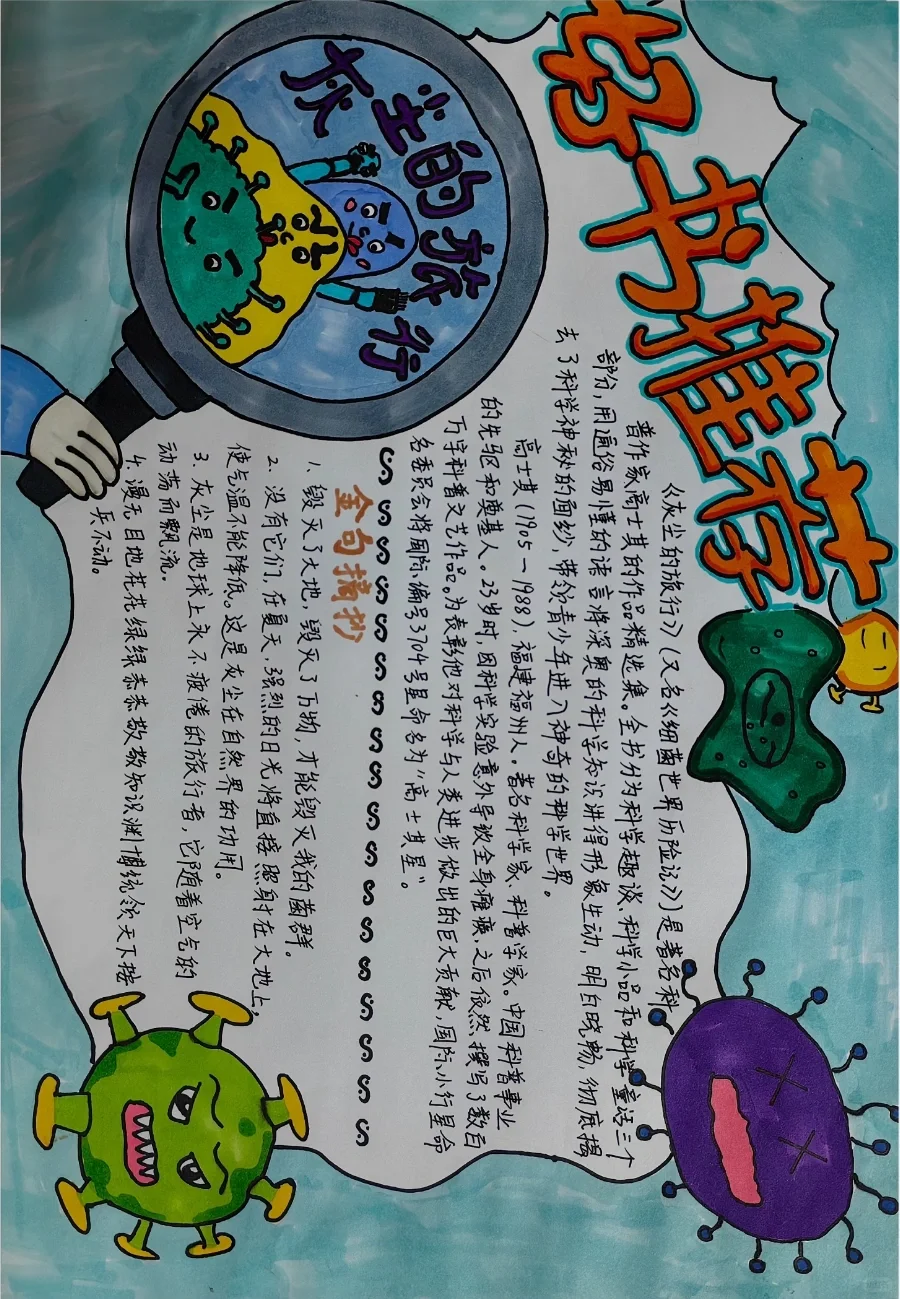 好书推荐
灰尘的旅行
《灰尘的旅行》(又名《细菌世界历险记》)是著名科
普作家高士其的作品精选集。全书分为科学趣谈、科学小品和科学童话三个
部分,用通俗易懂的语言将深奥的科学知识讲得形象生动,明白晓畅,彻底揭
去了科学神秘的面纱,带领青少年进入神奇的科学世界。
高士其(1905—1988),福建福州人。著名科学家、科普学家。中国科普事业
的先驱和奠基人。23岁时,因科学实验意外导致全身瘫痪,之后依然撰写了数百
万字科普文艺作品。为表彰他对科学与人类进步做出的巨大贡献,国际小行星命
名委员会将国际编号3704号星命名为“高士其星”。
金句摘抄
1. 毁灭了大地,毁灭了万物,才能毁灭我的菌群。
2. 没有它们,在夏天,强烈的日光将直接照射在大地上,
使气温不能降低。这是灰尘在自然界的功用。
3. 灰尘是地球上永不疲倦的旅行者,它随着空气的
动荡而飘流。
4. 漫无目地花花绿绿恭恭敬敬知识渊博统领天下按
兵不动。